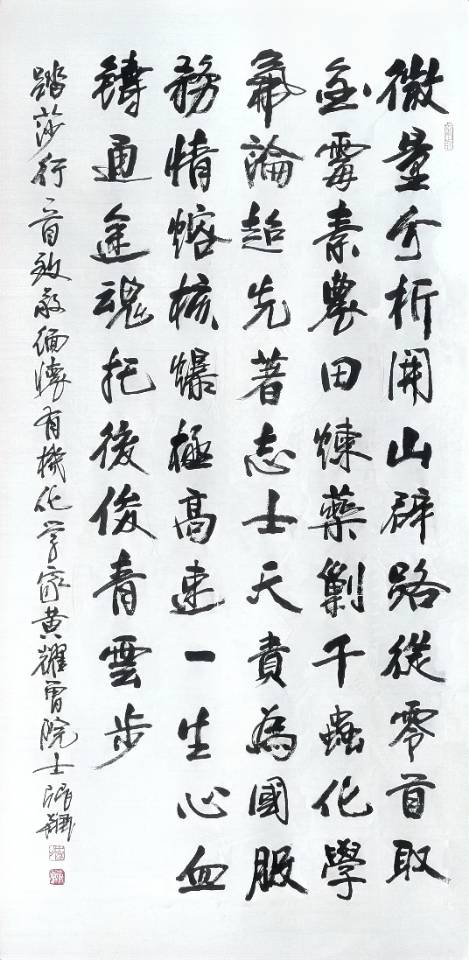 微量分析開山辟路從零首取
金霉素農田煉藥剿千蟲化學
氟論超先著志士天責為國服
務情熔核爆極高速一生心血
鑄通途魂托後俊青雲步
踏莎行一首致敬緬懷有機化学家黃耀曾院士張